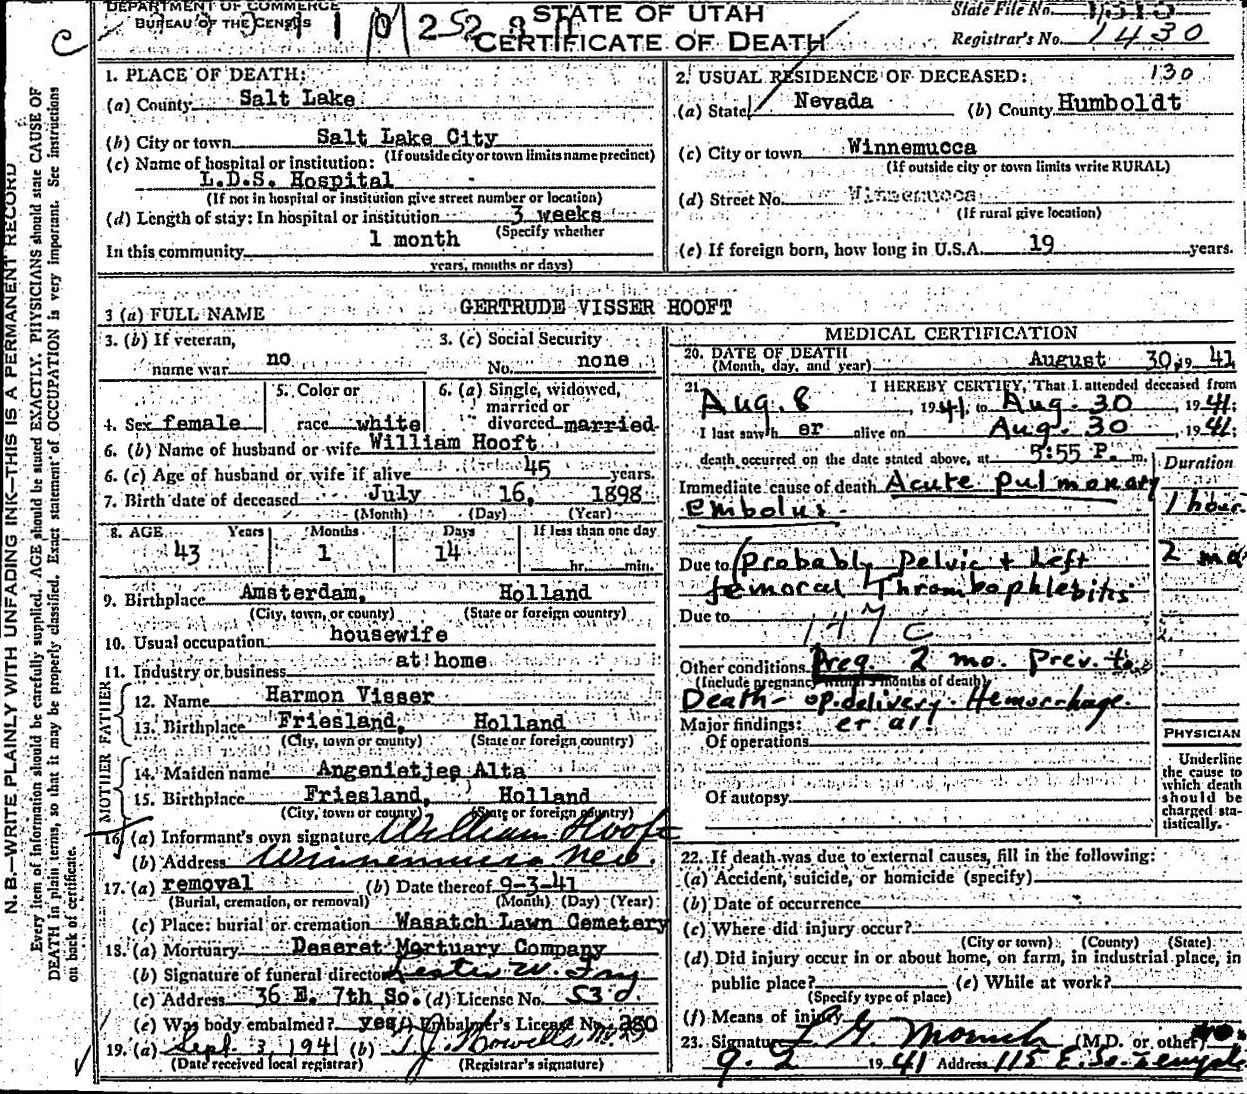 DEPARTMENT OF COMMERCE
BUREAU OF THE CENSUS
STATE OF UTAH
CERTIFICATE OF DEATH
State File No.
Registrar's No. 1430
130
N. B.—WRITE PLAINLY WITH UNFADING INK—THIS IS A PERMANENT RECORD
Every item of information should be carefully supplied. AGE should be stated EXACTLY. PHYSICIANS should state CAUSE OF
DEATH in plain terms, so that it may be properly classified. Exact statement of OCCUPATION is very important. See instructions
on back of certificate.
1. PLACE OF DEATH:
(a) County Salt Lake
(b) City or town Salt Lake City
(If outside city or town limits name precinct)
(c) Name of hospital or institution:
L.D.S. Hospital
(If not in hospital or institution give street number or location)
(d) Length of stay: In hospital or institution 3 weeks
(Specify whether
In this community 1 month
years, months or days)
2. USUAL RESIDENCE OF DECEASED:
(a) State Nevada (b) County Humboldt
(c) City or town Winnemucca
(If outside city or town limits write RURAL)
(d) Street No. Winnemucca
(If rural give location)
(e) If foreign born, how long in U.S.A. 19 years.
3 (a) FULL NAME GERTRUDE VISSER HOOFT
3. (b) If veteran,
name war no
3. (c) Social Security
No. none
4. Sex female
5. Color or
race white
6. (a) Single, widowed,
married or
divorced married
6. (b) Name of husband or wife William Hooft
6. (c) Age of husband or wife if alive 45 years.
7. Birth date of deceased July 16, 1898
(Month) (Day) (Year)
8. AGE Years Months Days If less than one day
43 1 14 hr. min.
9. Birthplace Amsterdam, Holland
(City, town, or county) (State or foreign country)
10. Usual occupation housewife
11. Industry or business at home
FATHER
12. Name Harmon Visser
13. Birthplace Friesland, Holland
(City, town or county) (State or foreign country)
MOTHER
14. Maiden name Angenietjes Alta
15. Birthplace Friesland, Holland
(City, town or county) (State or foreign country)
16. (a) Informant's own signature William Hooft
(b) Address Winnemucca Nev.
17. (a) removal (b) Date thereof 9-3-41
(Burial, cremation, or removal) (Month) (Day) (Year)
(c) Place: burial or cremation Wasatch Lawn Cemetery
18. (a) Mortuary Deseret Mortuary Company
(b) Signature of funeral director Lester W.
(c) Address 36 E. 7th So. (d) License No.
(e) Was body embalmed? yes (f) Embalmer's License No.
19. (a) Sept. 3, 1941 (b) T. J. Howells, M.D.
(Date received local registrar) (Registrar's signature)
MEDICAL CERTIFICATION
20. DATE OF DEATH
(Month, day, and year) August 30, 19 41
21. I HEREBY CERTIFY, That I attended deceased from
Aug. 8, 1941, to Aug. 30, 1941;
I last saw h er alive on Aug. 30, 1941;
death occurred on the date stated above, at 5:55 P. m.
Duration
Immediate cause of death Acute pulmonary
embolus. 1 hour
Due to (Probably Pelvic + Left 2 mo
femoral Thrombophlebitis
Due to
147 c
Other conditions Preg. 2 mo. prev. to
(Include pregnancy within 3 months of death)
Death - op. delivery. Hemorrhage.
Major findings: et al
Of operations
Of autopsy
PHYSICIAN
Underline
the cause to
which death
should be
charged sta-
tistically.
22. If death was due to external causes, fill in the following:
(a) Accident, suicide, or homicide (specify)
(b) Date of occurrence
(c) Where did injury occur?
(City or town) (County) (State)
(d) Did injury occur in or about home, on farm, in industrial place, in
public place? (e) While at work?
(Specify type of place)
(f) Means of injury
23. Signature L. G. Moench (M.D. or other)
9-2 1941 Address 115 E. So. Temple